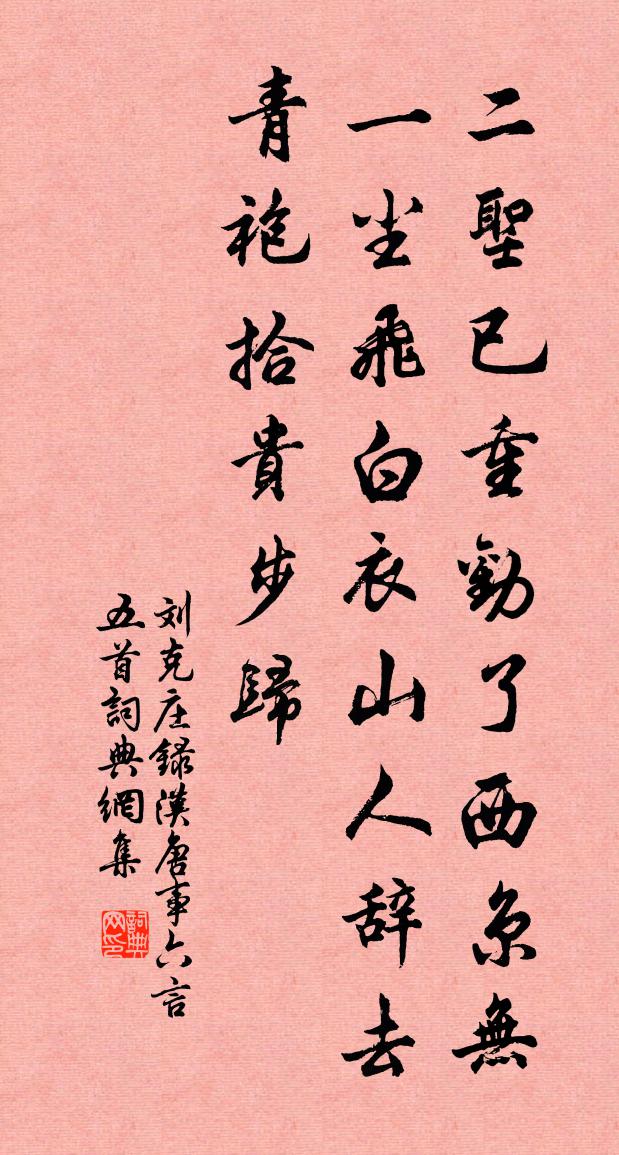 二聖已重勸了西京無
一尘飛白衣山人辞去
青袍拾貴步歸
刘克庄録漢唐事六言
五首詞典網集
詞典网印